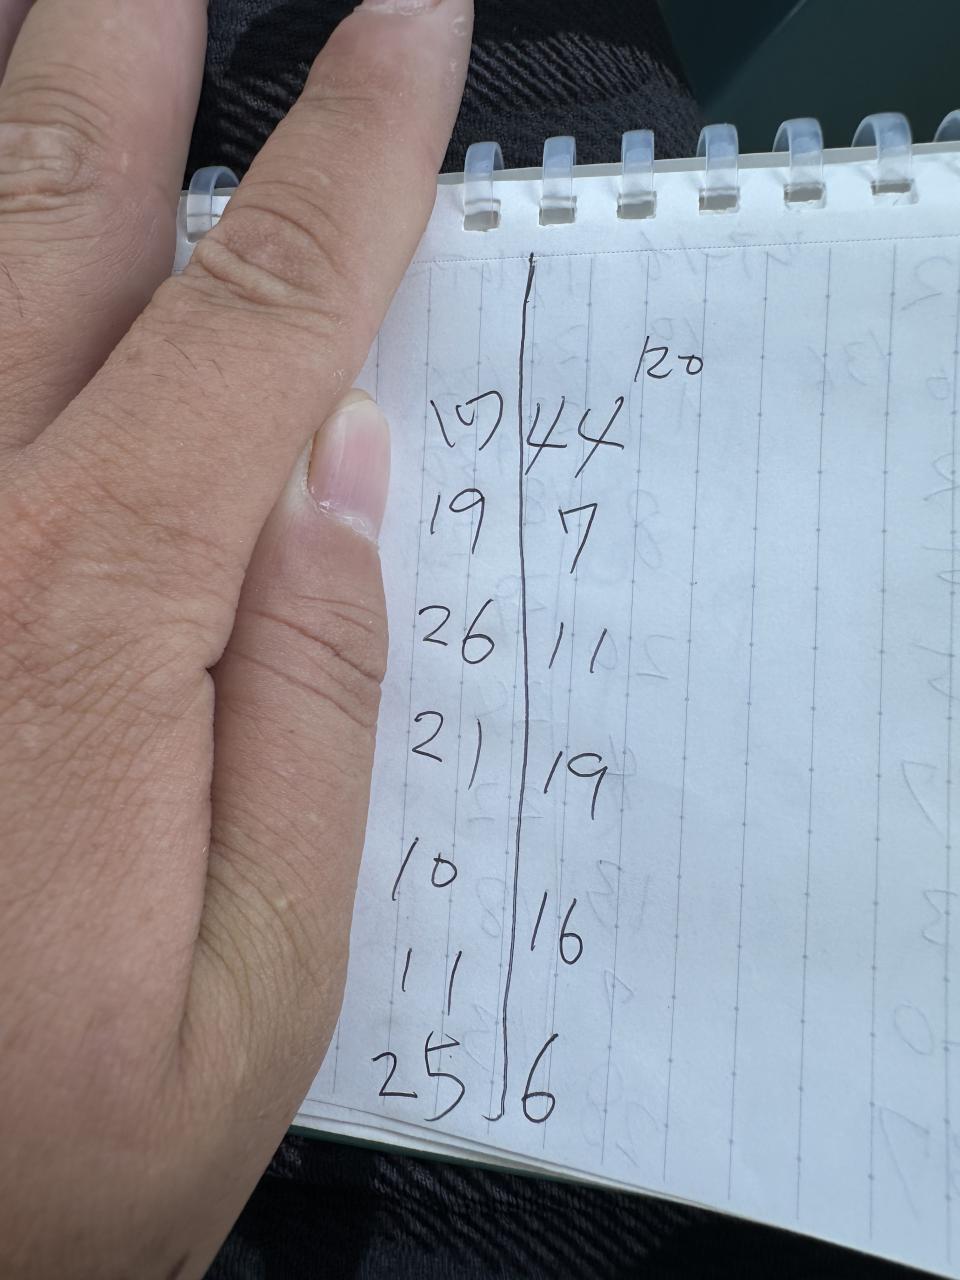 120
17 44
19 7
26 11
21 19
10 16
11
25 6